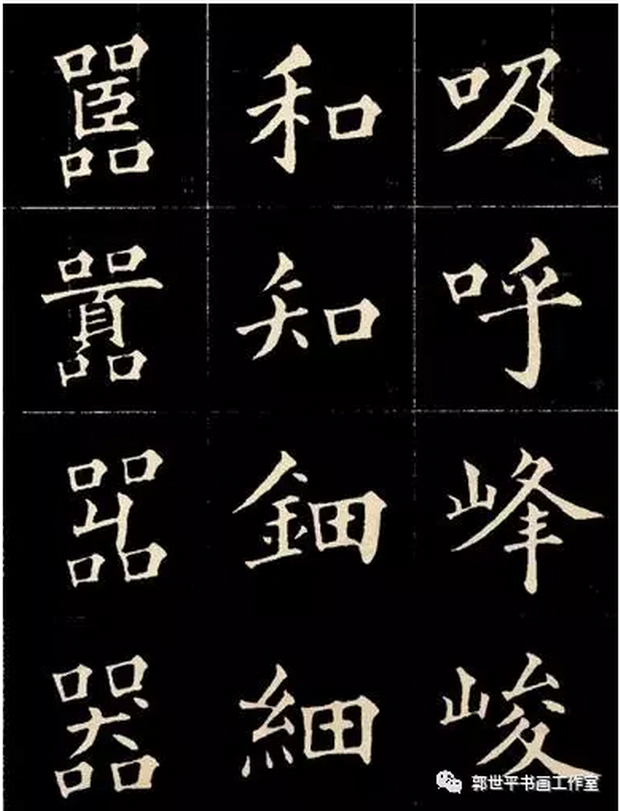 吸呼峰峻
和知鈿細
嚚囂嘂器
郭世平书画工作室